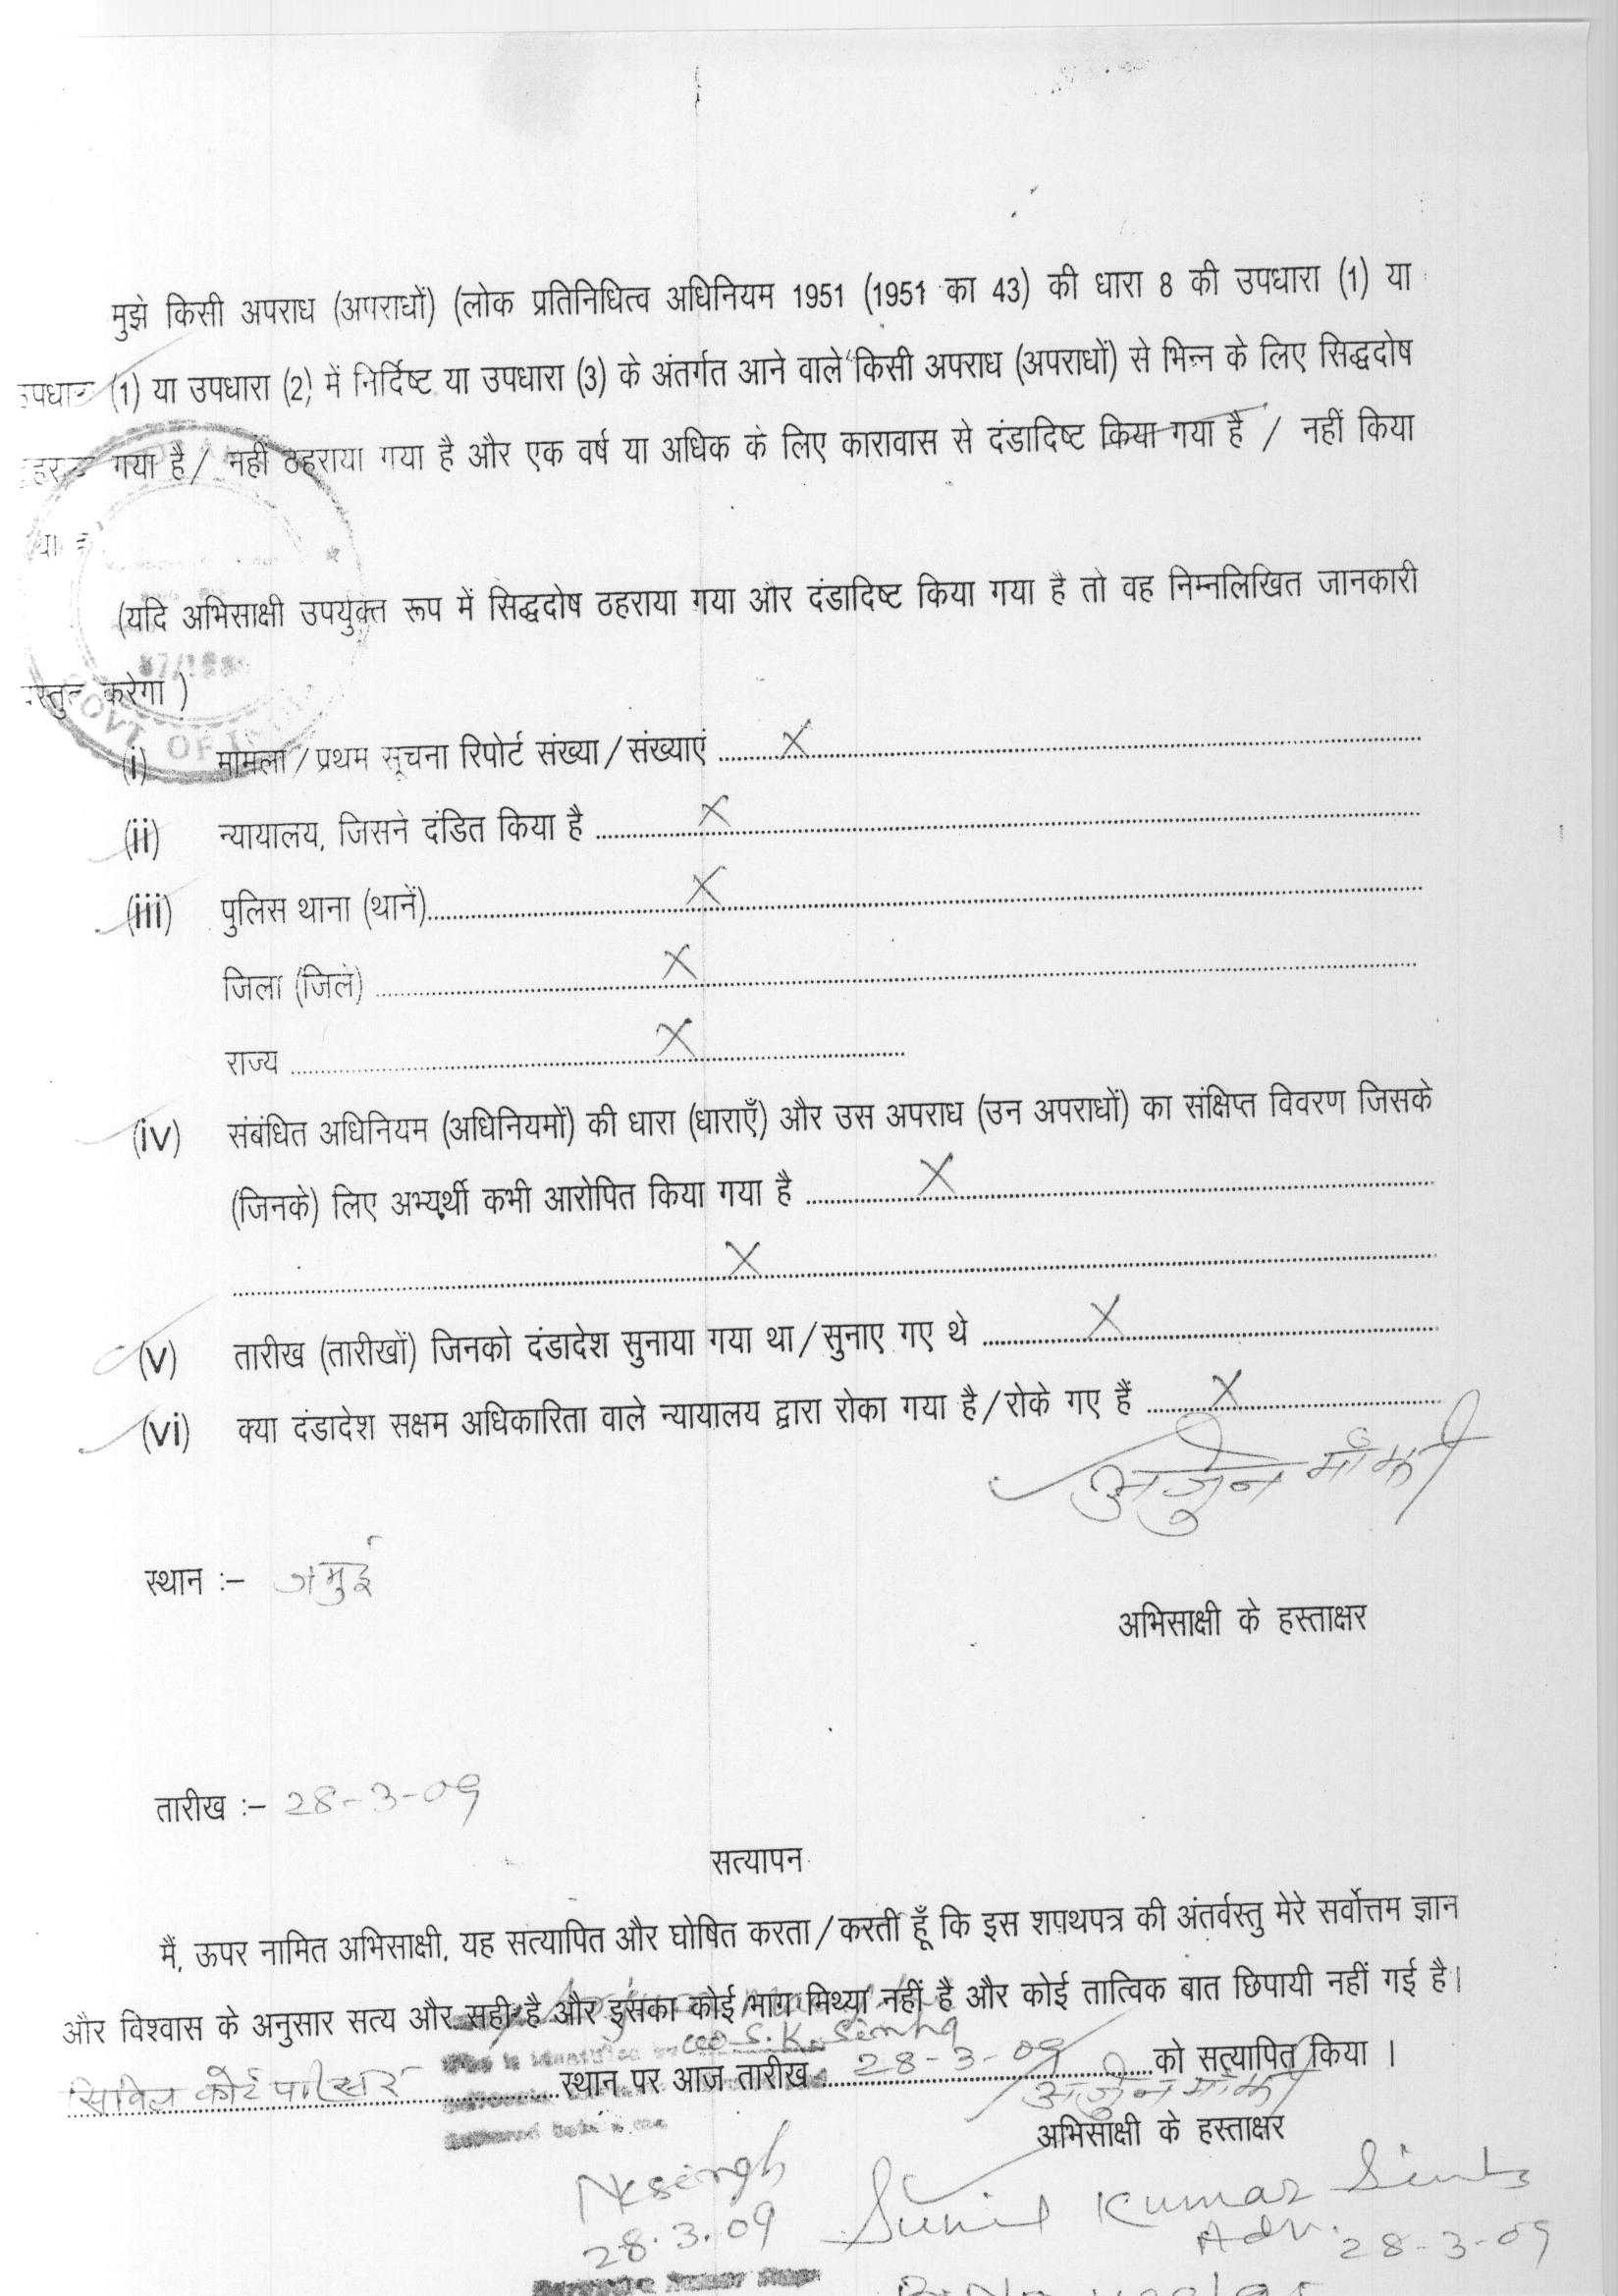 मुझे किसी अपराध (अपराधों) (लोक प्रतिनिधित्व अधिनियम 1951 (1951 का 43) की धारा 8 की उपधारा (1) या
(1) या उपधारा (2) में निर्दिष्ट या उपधारा (3) के अंतर्गत आने वाले किसी अपराध (अपराधों) से भिन्न के लिए सिद्धदोष
गया है / नहीं ठहराया गया है और एक वर्ष या अधिक के लिए कारावास से दंडादिष्ट किया गया है / नहीं किया
(यदि अभिसाक्षी उपर्युक्त रूप में सिद्धदोष ठहराया गया और दंडादिष्ट किया गया है तो वह निम्नलिखित जानकारी
करेगा )
GOVT OF
(i) मामला / प्रथम सूचना रिपोर्ट संख्या / संख्याएं X
(ii) न्यायालय, जिसने दंडित किया है X
(iii) पुलिस थाना (थानें) X
जिला (जिले) X
राज्य X
(iv) संबंधित अधिनियम (अधिनियमों) की धारा (धाराएँ) और उस अपराध (उन अपराधों) का संक्षिप्त विवरण जिसके
(जिनके) लिए अभ्यर्थी कभी आरोपित किया गया है X
X
(v) तारीख (तारीखों) जिनको दंडादेश सुनाया गया था / सुनाए गए थे X
(vi) क्या दंडादेश सक्षम अधिकारिता वाले न्यायालय द्वारा रोका गया है / रोके गए हैं X
अर्जुन माँझी
स्थान :– जमुई
अभिसाक्षी के हस्ताक्षर
तारीख :– 28-3-09
सत्यापन
मैं, ऊपर नामित अभिसाक्षी, यह सत्यापित और घोषित करता / करती हूँ कि इस शपथपत्र की अंतर्वस्तु मेरे सर्वोत्तम ज्ञान
और विश्वास के अनुसार सत्य और सही है और इसका कोई भाग मिथ्या नहीं है और कोई तात्विक बात छिपायी नहीं गई है।
S. K. Simha
सिविल कोर्ट स्थान पर आज तारीख 28-3-09 को सत्यापित किया ।
अर्जुन माँझी
अभिसाक्षी के हस्ताक्षर
NKsingh
28.3.09
Sunil Kumar
Adv.
28-3-09